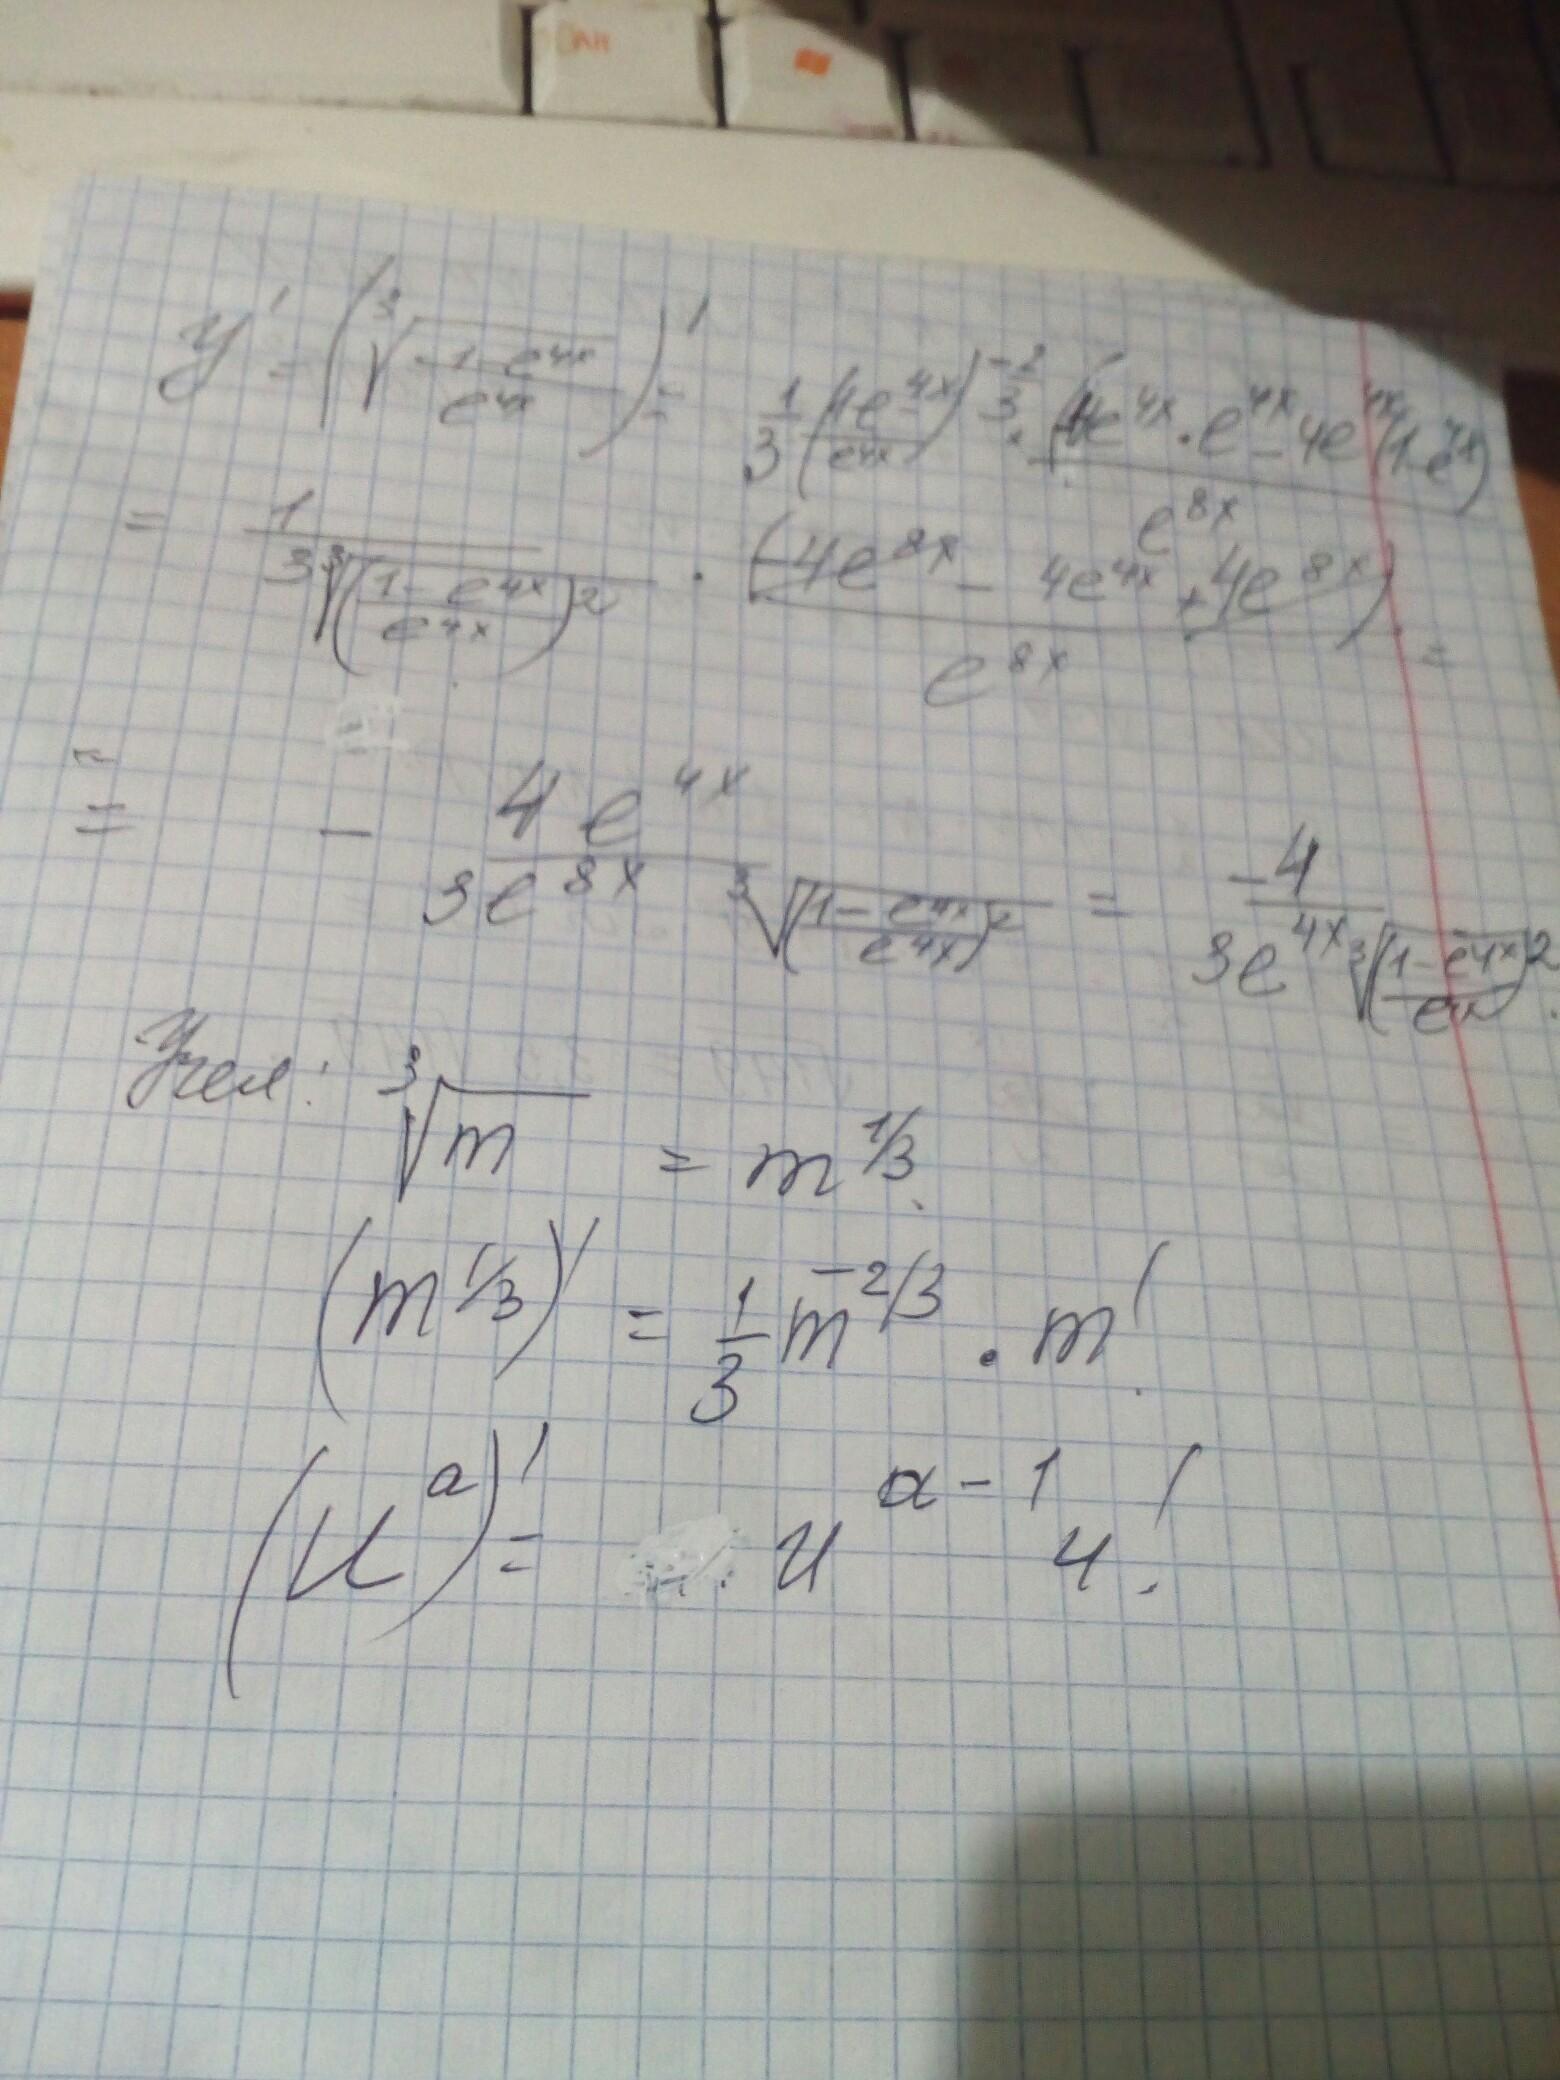 Alt
y' = (∛((1-e^4x)/e^4x))' = 1/3 ((1-e^4x)/e^4x)^(-2/3) · (-4e^4x · e^4x - 4e^4x(1-e^4x))/e^8x
= 1/(3∛((1-e^4x)/e^4x)^2) · (-4e^8x - 4e^4x + 4e^8x)/e^8x =
= - 4e^4x/(3e^8x ∛((1-e^4x)/e^4x)^2) = -4/(3e^4x ∛((1-e^4x)/e^4x)^2).
Учел: ∛m = m^1/3.
(m^1/3)' = 1/3 m^-2/3 · m'.
(u^a)' = u^a-1 u'.